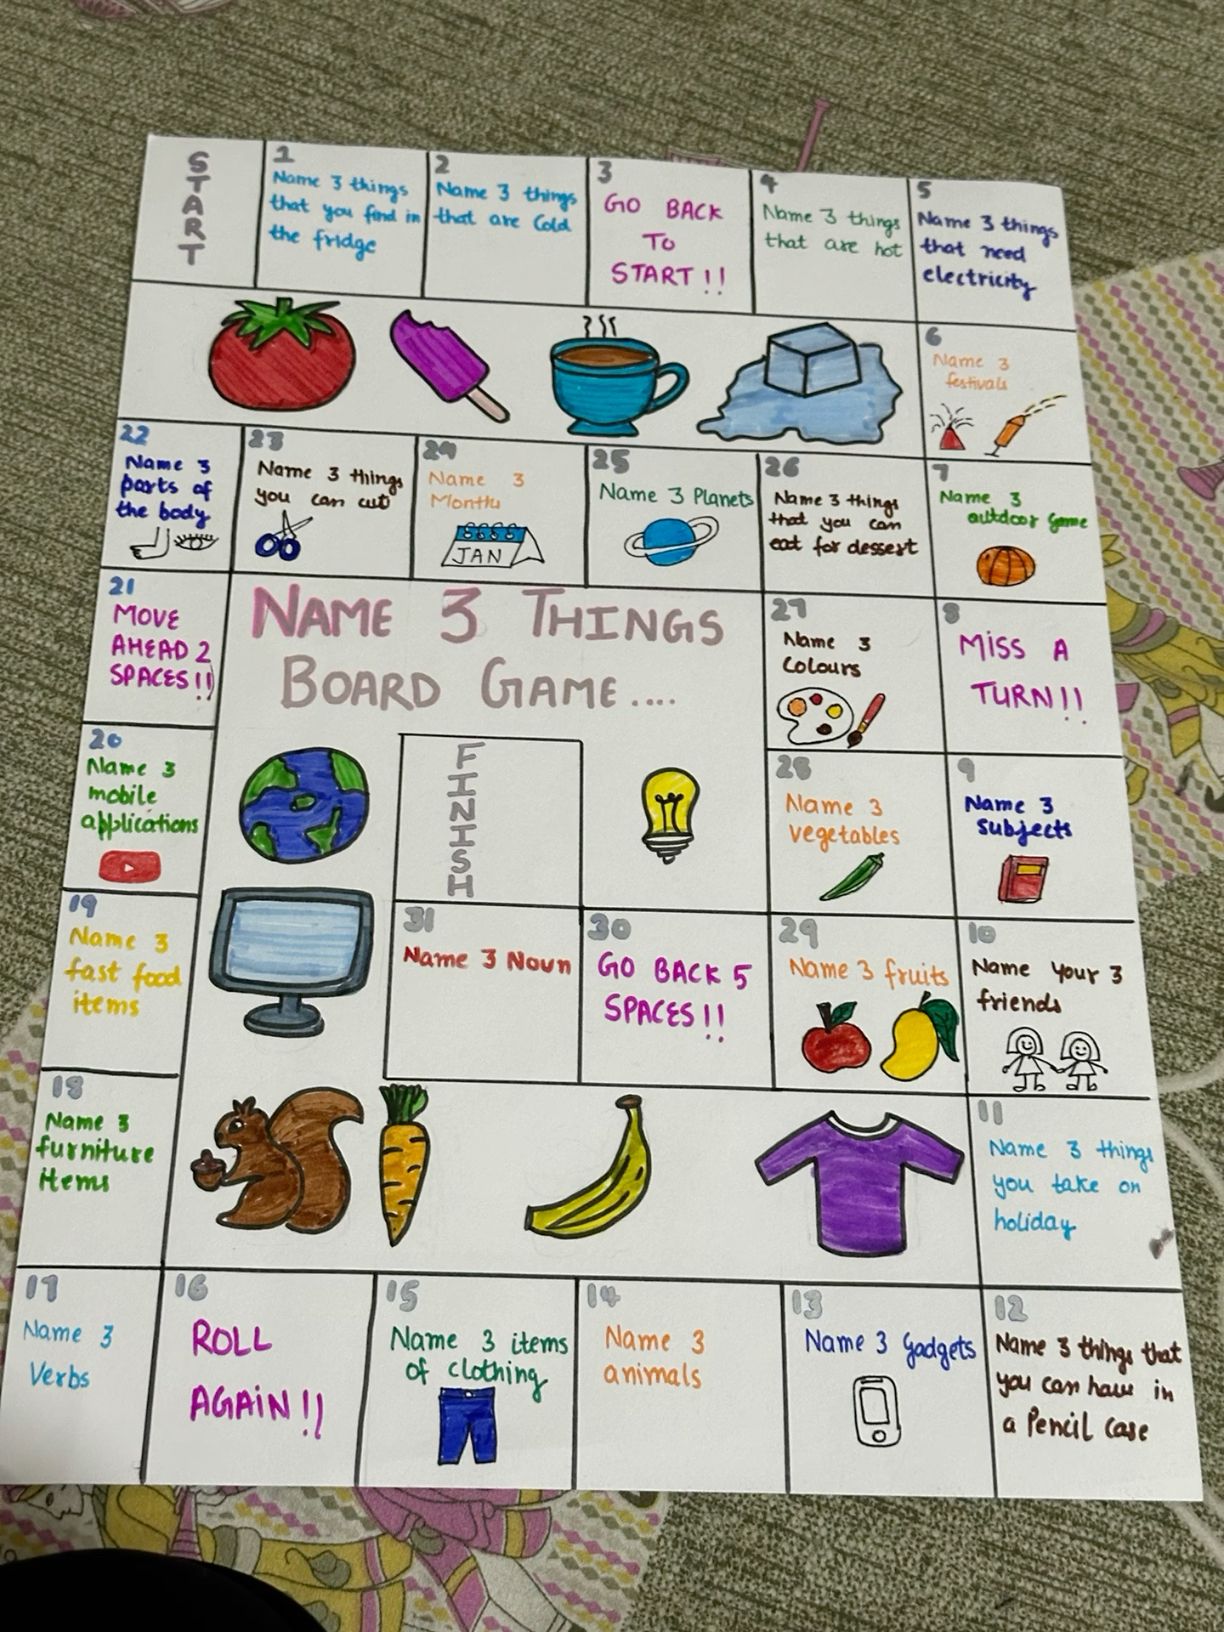 S
T
A
R
T
1
Name 3 things
that you find in
the fridge
2
Name 3 things
that are Cold
3
GO BACK
TO
START!!
4
Name 3 things
that are hot
5
Name 3 things
that need
electricity
6
Name 3
festivals
7
Name 3
outdoor game
8
MISS A
TURN!!
9
Name 3
Subjects
10
Name your 3
friends
11
Name 3 things
you take on
holiday
12
Name 3 things that
you can have in
a Pencil Case
13
Name 3 Gadgets
14
Name 3
animals
15
Name 3 items
of clothing
16
ROLL
AGAIN!!
17
Name 3
Verbs
18
Name 3
furniture
items
19
Name 3
fast food
items
20
Name 3
mobile
applications
21
MOVE
AHEAD 2
SPACES!!
22
Name 3
parts of
the body
23
Name 3 things
you can cut
24
Name 3
Months
JAN
25
Name 3 Planets
26
Name 3 things
that you can
eat for dessert
27
Name 3
Colours
28
Name 3
vegetables
29
Name 3 fruits
30
GO BACK 5
SPACES!!
31
Name 3 Noun
NAME 3 THINGS
BOARD GAME....
F
I
N
I
S
H